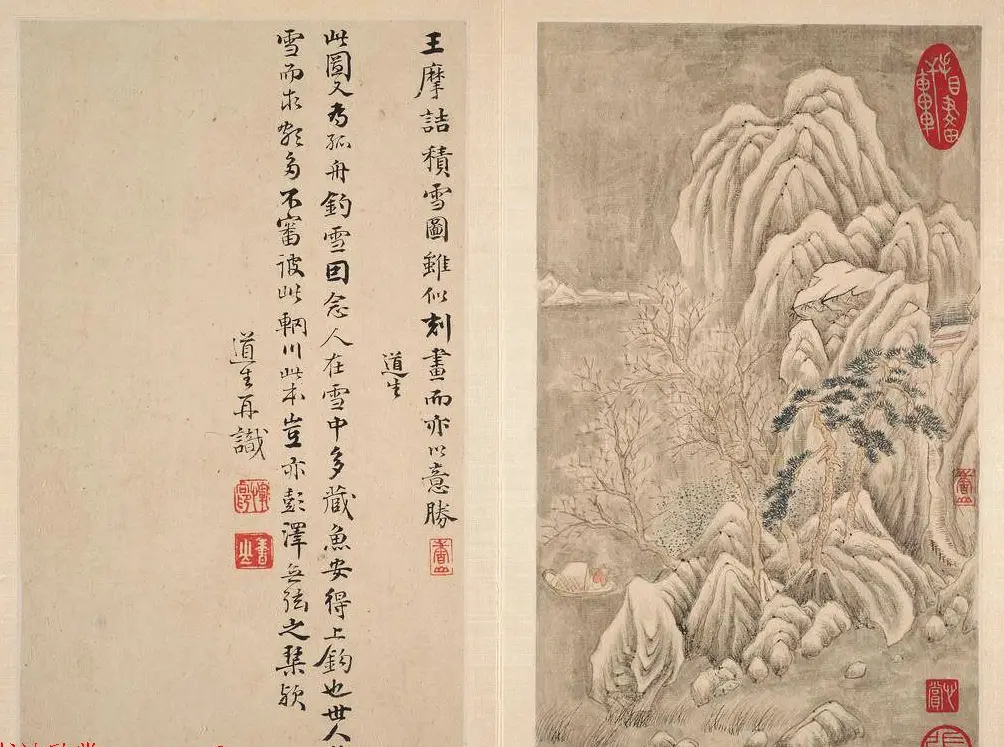 王摩詰積雪圖雖似刻畫而亦以意勝
道生
此圖又為孤舟釣雪因念人在雪中多藏魚安得上鈎也世人
雪而求都多不審彼此輞川此本豈亦彭澤無弦之琴歟
道生再識